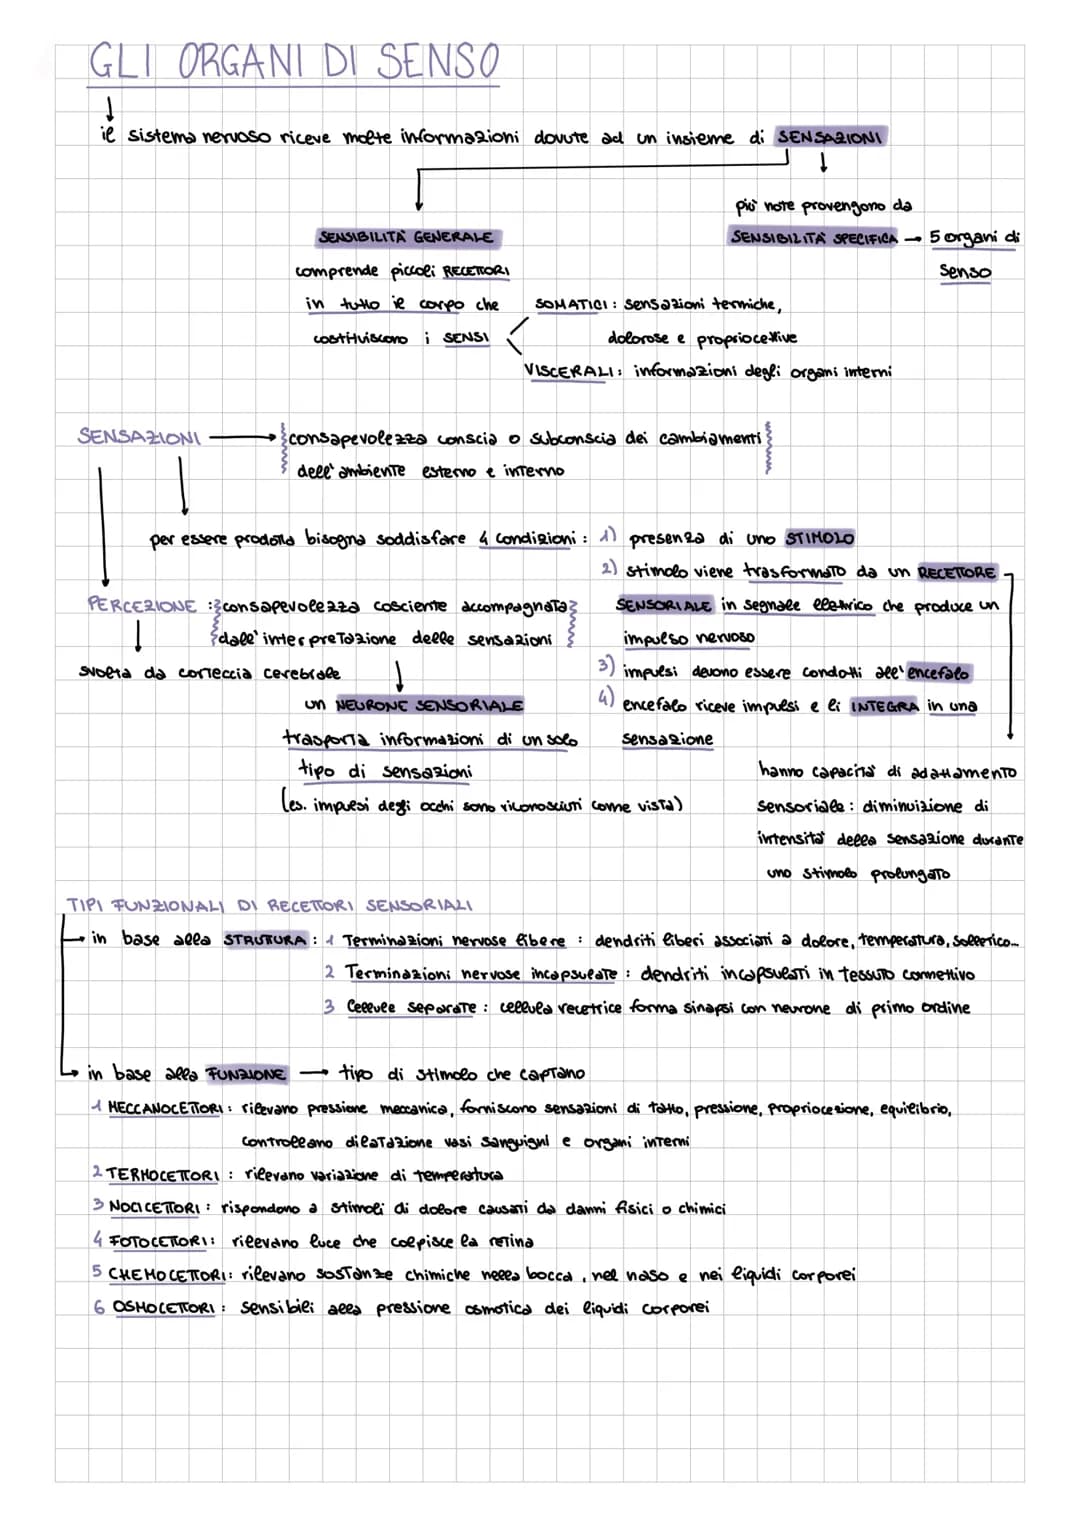 GLI ORGANI DI SENSO
il sistema nervoso riceve molte informazioni dovute ad un insieme di SENSAZIONI
più note provengono da
SENSIBILITÀ GENERALE
SENSIBILITÀ SPECIFICA → 5 organi di
senso
comprende piccoli RECETTORI
in tutto il corpo che
costituiscono i SENSI
SOMATICI: sensazioni termiche,
dolorose e propriocettive
VISCERALI: informazioni degli organi interni
SENSAZIONI → consapevolezza conscia o subconscia dei cambiamenti
dell'ambiente esterno e interno
per essere prodotta bisogna soddisfare 4 condizioni: 1) presenza di uno STIMOLO
2) stimolo viene trasformato da un RECETTORE
SENSORIALE in segnale elettrico che produce un
impulso nervoso
3) impulsi devono essere condotti all'encefalo
4) encefalo riceve impulsi e li INTEGRA in una
sensazione
PERCEZIONE: consapevolezza cosciente accompagnata
dall'interpretazione delle sensazioni
svolta da corteccia cerebrale
un NEURONE SENSORIALE
trasporta informazioni di un solo
tipo di sensazioni
(es. impulsi degli occhi sono riconosciuti come vista)
hanno capacità di adattamento
sensoriale: diminuizione di
intensità della sensazione durante
uno stimolo prolungato
TIPI FUNZIONALI DI RECETTORI SENSORIALI
in base alla STRUTTURA: 1 Terminazioni nervose libere: dendriti liberi associati a dolore, temperatura, solletico...
2 Terminazioni nervose incapsulate: dendriti incapsulati in tessuto connettivo
3 Cellule separate: cellula recetrice forma sinapsi con neurone di primo ordine
in base alla FUNZIONE → tipo di stimolo che captano
1 MECCANOCETTORI: rilevano pressione meccanica, forniscono sensazioni di tatto, pressione, propriocezione, equilibrio,
controllano dilatazione vasi sanguigni e organi interni
2 TERMOCETTORI: rilevano variazione di temperatura
3 NOCICETTORI: rispondono a stimoli di dolore causati da danni fisici o chimici
4 FOTOCETTORI: rilevano luce che colpisce la retina
5 CHEMOCETTORI: rilevano sostanze chimiche nella bocca, nel naso e nei liquidi corporei
6 OSMOCETTORI: sensibili alla pressione osmotica dei liquidi corporei